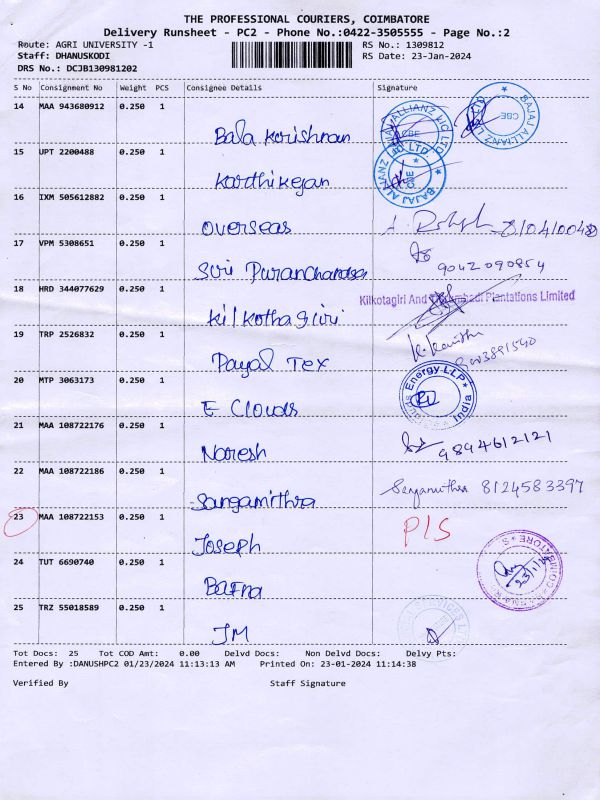 THE PROFESSIONAL COURIERS, COIMBATORE
Delivery Runsheet - PC2 - Phone No.:0422-3505555 - Page No.:2
Route: AGRI UNIVERSITY -1 RS No.: 1309812
Staff: DHANUSKODI RS Date: 23-Jan-2024
DRS No.: DCJB130981202
S No Consignment No Weight PCS Consignee Details Signature
14 MAA 943680912 0.250 1
Bala Korishnan
BAJAJ ALLIANZ LIC LTD CBE
15 UPT 2200488 0.250 1
Karthikeyan
16 IXM 505612882 0.250 1
Overseas
17 VPM 5308651 0.250 1
9042090854
Sori Puranchandsa
18 HRD 344077629 0.250 1
Kilkotagiri And Plantations Limited
Kilkothagiri
19 TRP 2526832 0.250 1
Payal Tex
20 MTP 3063173 0.250 1
Energy LLP India
E Clouds
21 MAA 108722176 0.250 1
9894612121
Naresh
22 MAA 108722186 0.250 1
8124583397
Sangamithra
23 MAA 108722153 0.250 1 P/S
Joseph
24 TUT 6690740 0.250 1
COIMBATORE
Bafna
25 TRZ 55018589 0.250 1
JM
Tot Docs: 25 Tot COD Amt: 0.00 Delvd Docs: Non Delvd Docs: Delvy Pts:
Entered By :DANUSHPC2 01/23/2024 11:13:13 AM Printed On: 23-01-2024 11:14:38
Verified By Staff Signature